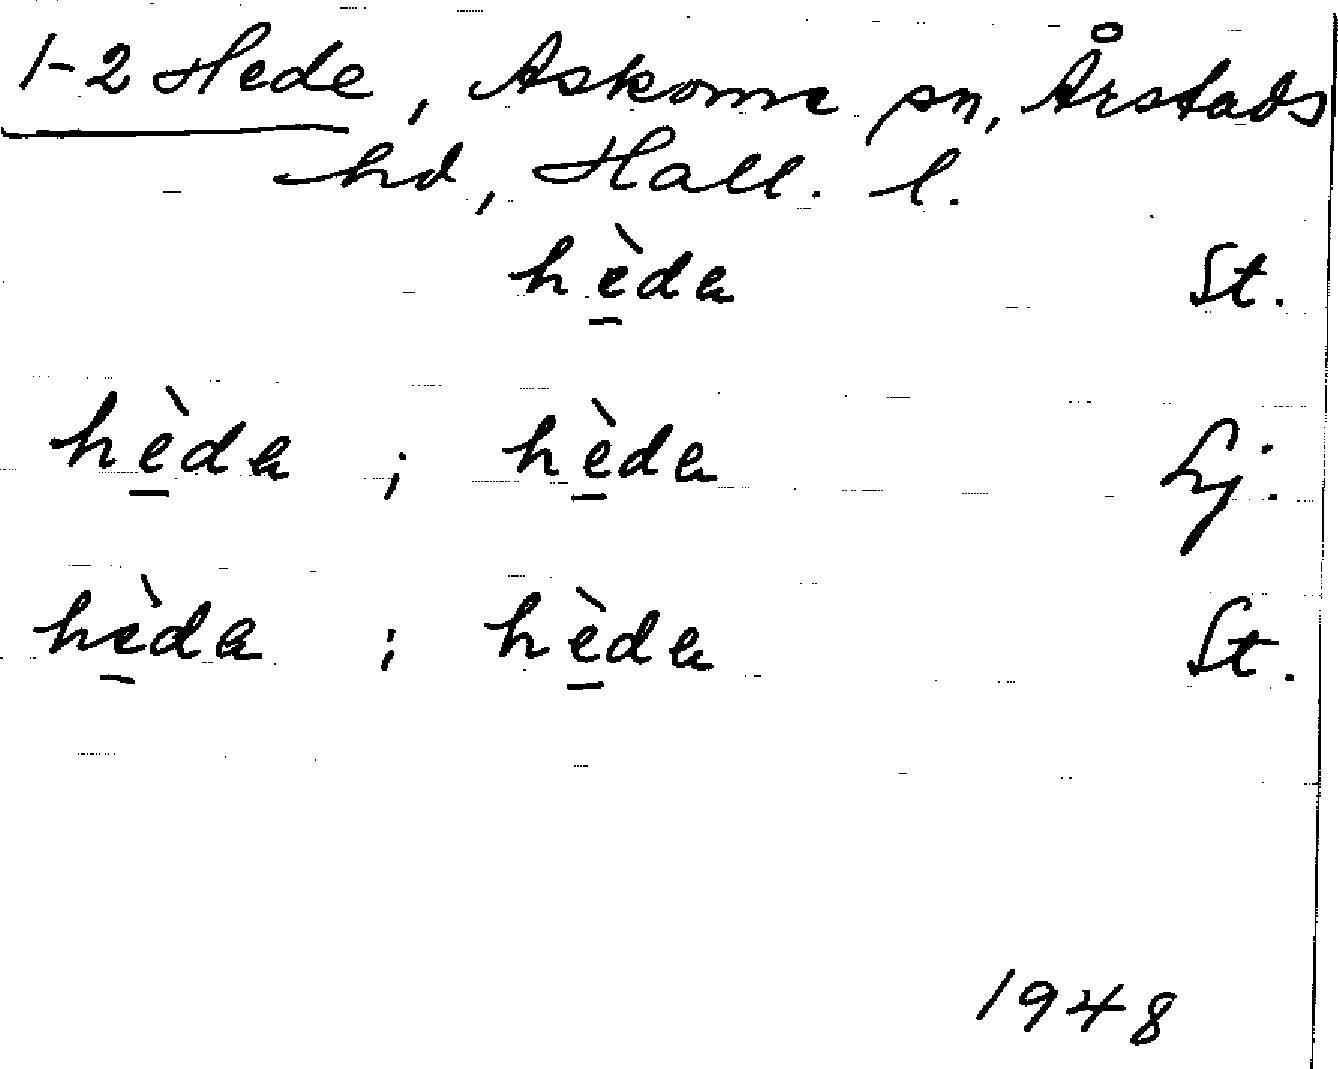 1-2 Hede, Askome sn, Årstads
hd, Hall. l.
hèda St.
hèda ; hèda Lj.
hèda ; hèda St.
1948